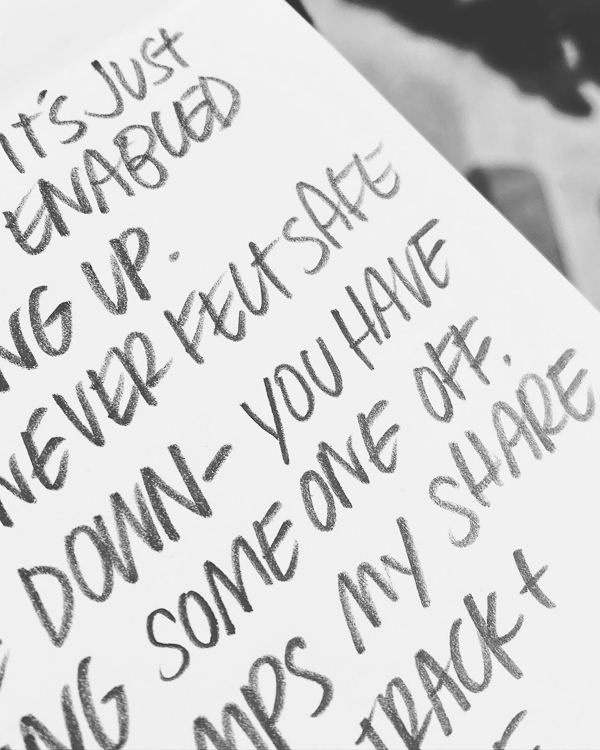 IT'S JUST
ENABLED
NG UP.
NEVER FELT SAFE
DOWN- YOU HAVE
NG SOMEONE OFF.
MPS MY SHARE
TRACK +